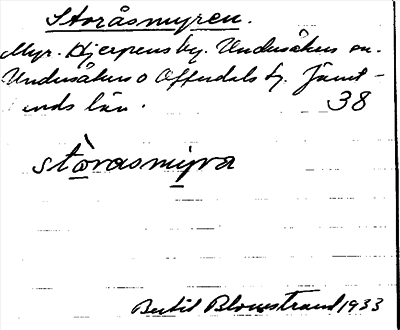 Storåsmyren.
Myr. Hjerpens by. Undersåkers sn.
Undersåkers o Offerdals tg. Jämt-
lands län. 38
stòrasmyra
Bertil Blomstrand 1933